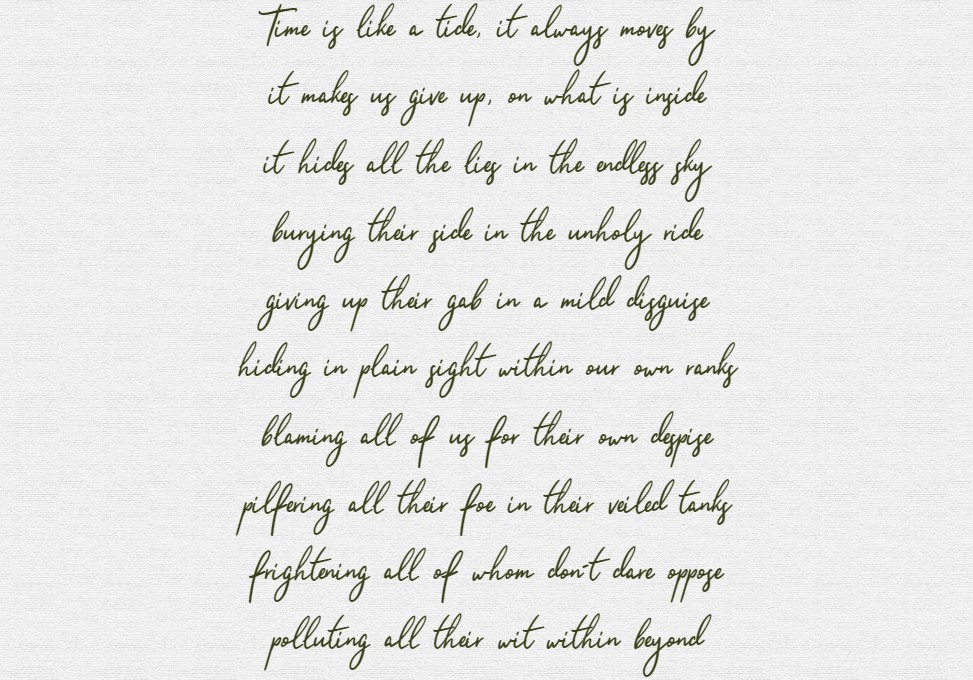 Time is like a tide, it always moves by
it makes us give up, on what is inside
it hides all the lies in the endless sky
burying their side in the unholy ride
giving up their gab in a mild disguise
hiding in plain sight within our own ranks
blaming all of us for their own despise
pilfering all their foe in their veiled tanks
frightening all of whom don't dare oppose
polluting all their wit within beyond